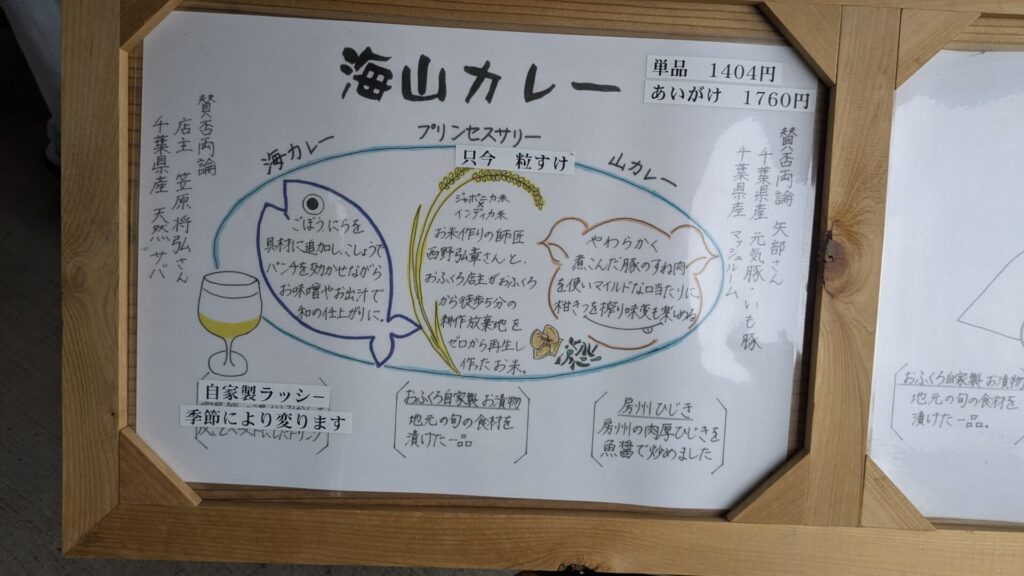 海山カレー
単品　1404円
あいがけ　1760円
プリンセスサリー
只今　粒すけ
海カレー
山カレー
賛否両論
店主 笠原将弘さん
千葉県産 天然サバ
ごぼうにらを
具材に追加し、こしょうで
パンチを効かせながら
お味噌やお出汁で
和の仕上がりに。
ジャポニカ米
×
インディカ米
お米作りの師匠
西野弘章さんと、
おふくろ店主がおふくろ
から徒歩5分の
耕作放棄地を
ゼロから再生し
作ったお米。
やわらかく
煮こんだ豚のすね肉
を使いマイルドな口当たりに
柑きつを搾り味変も楽しめる
賛否両論 矢部さん
千葉県産 元気豚、いも豚
千葉県産 マッシュルーム
自家製ラッシー
季節により変ります
おふくろ自家製 お漬物
地元の旬の食材を
漬けた一品。
房州ひじき
房州の肉厚ひじきを
魚醤で炒めました
おふくろ自家製 お漬物
地元の旬の食材を
漬けた一品。